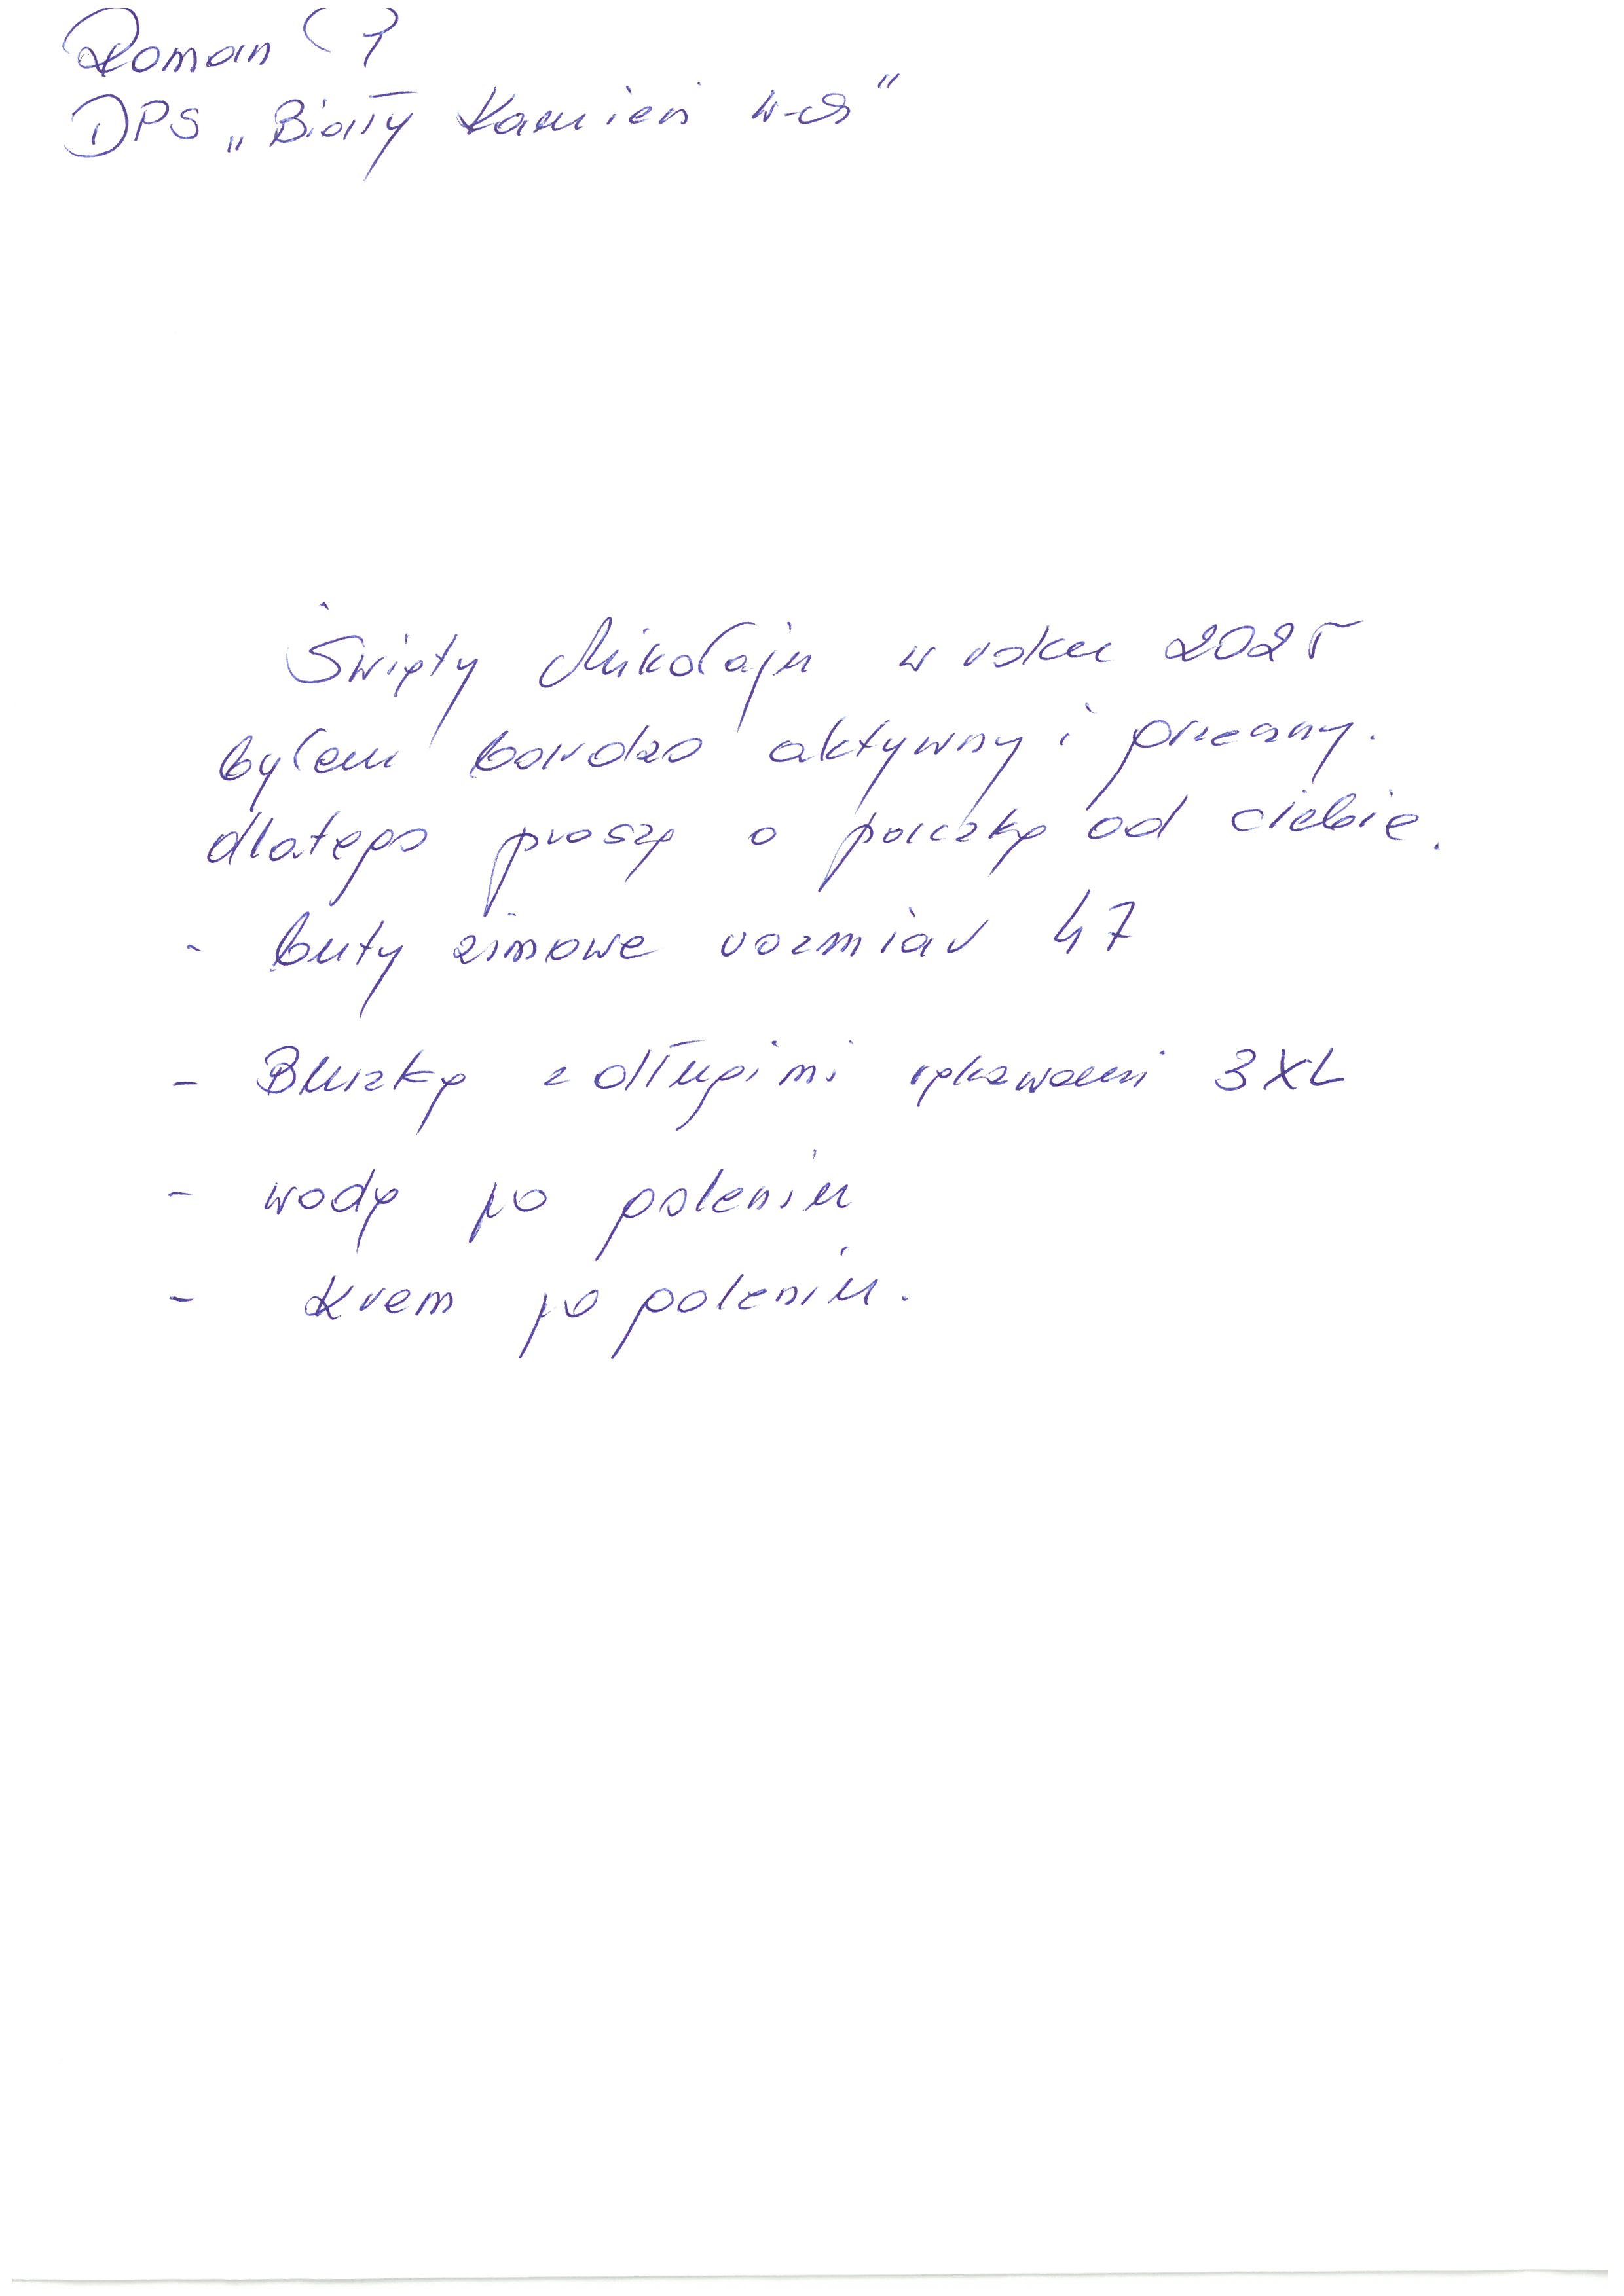 Roman
DPS „Biały Kamień W-ch"
Święty Mikołaju w roku 2025
byłem bardzo aktywny i grzeczny.
dlatego proszę o paczkę od ciebie.
- buty zimowe rozmiar 47
- Bluzkę z długimi rękawami 3XL
- wodę po goleniu
- Krem po goleniu.